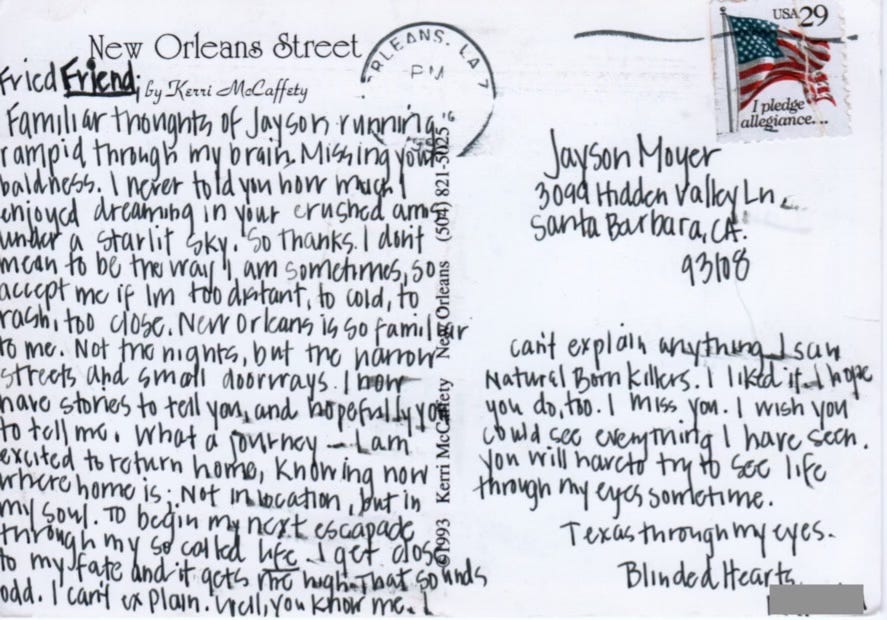 New Orleans Street
by Kerri McCaffety
Fried Friend,
Familiar thoughts of Jayson running
rampid through my brain. Missing your
baldness. I never told you how much I
enjoyed dreaming in your crushed arms
under a starlit sky. So thanks. I don't
mean to be the way I am sometimes, so
accept me if Im too distant, to cold, to
rash, too close. New Orleans is so familiar
to me. Not the nights, but the narrow
streets and small doorways. I now
have stories to tell you, and hopefully you
to tell me. What a journey - I am
excited to return home, knowing now
where home is; Not in location, but in
my soul. To begin my next escapade
through my so called life. I get close
to my fate and it gets me high. That sounds
odd. I can't explain. Well, you know me. I
©1993 Kerri McCaffety New Orleans (504) 821-5025
RLEANS, LA 7
PM
USA 29
I pledge
allegiance...
Jayson Moyer
3099 Hidden Valley Ln.
Santa Barbara, CA.
93108
can't explain anything. I saw
Natural Born Killers. I liked it. I hope
you do, too. I miss you. I wish you
could see everything I have seen.
You will have to try to see life
through my eyes sometime.
Texas through my eyes.
Blinded Hearts